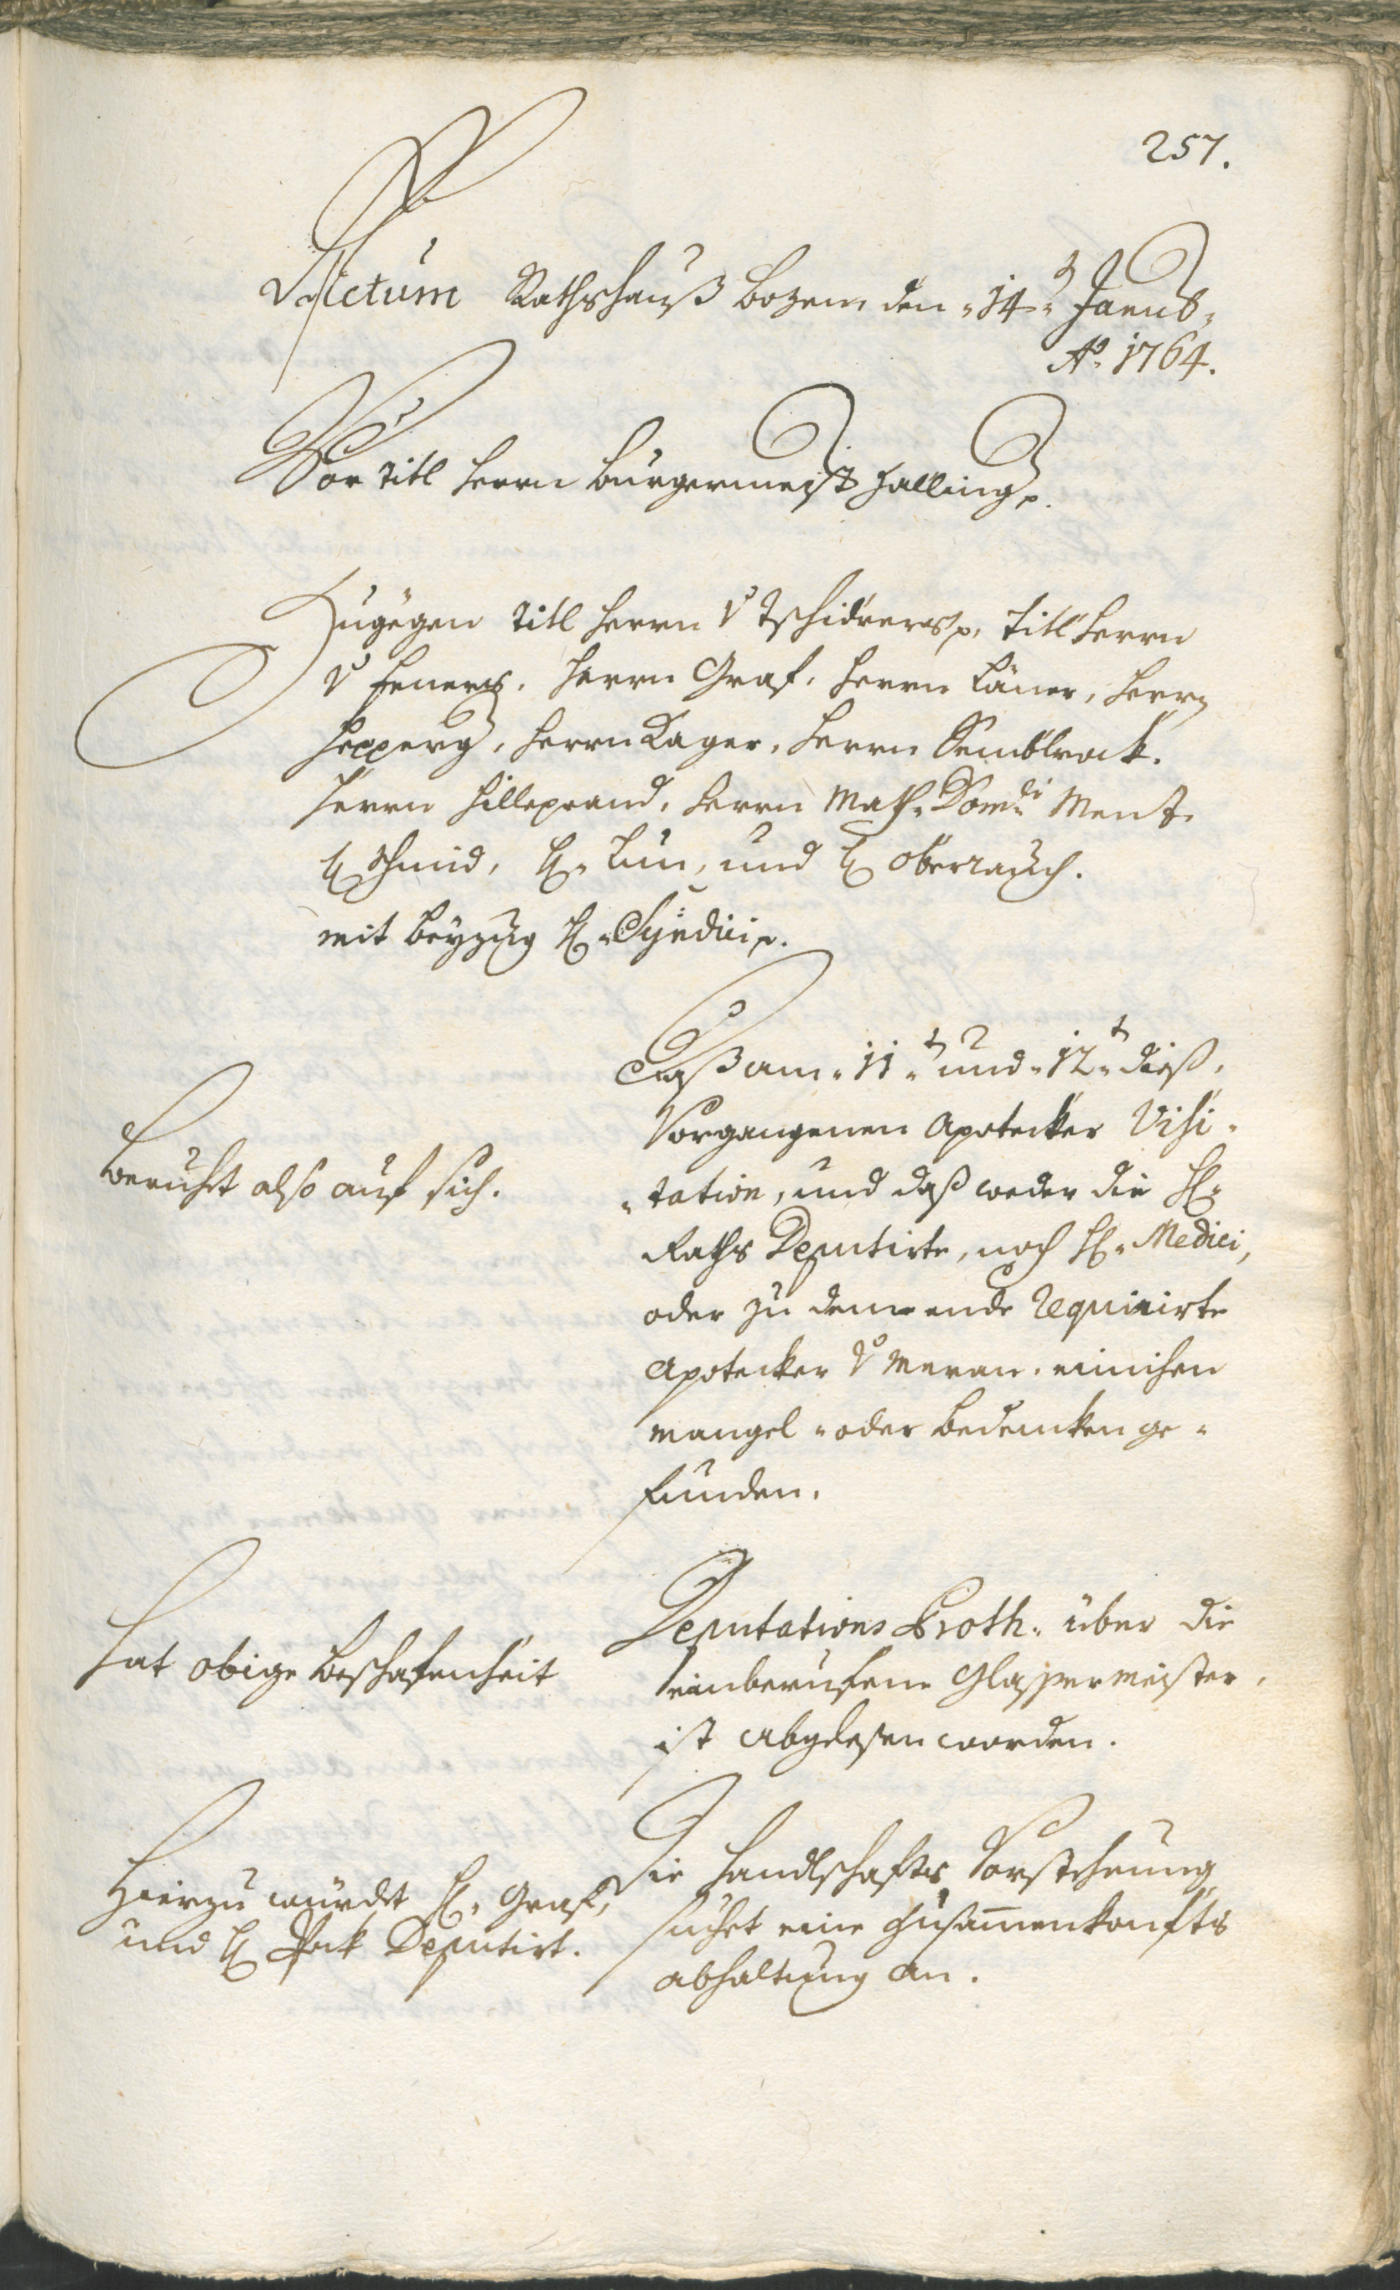 257.
Actum Rathshauß Bozen den 14t Janua:
Ao. 1764.
Vor titl Herrn Burgermeister Halling p.
Zugegen titl Herrn v Tschiderers p, titl Herrn
v Feners, Herrn Graf, Herrn Läner, Herrn
Hepperg, Herrn Kager, Herrn Semblrock.
Herrn Hilleprand, Herrn Math: Domdi Menz.
H: Schmid, H: Lun, und H: Oberrauch.
mit Beyzug H: Syndici p.
Daß am 11t und 12t dieß,
Vorgangenen Apotecker Visi-
-tation, und daß weder die H:
Raths Deputirte, noch H: Medici,
oder zu dem ende requirirte
Apotecker v Meran, einichen
mangel oder bedencken ge-
funden.
Beruhet also auf sich.
Deputations Proth: über die
einberufene Glassermeister,
ist abgelesen worden.
Hat obige Beschafenheit
Die Handlschafts Vorstehung
suchet eine Zusamenkonfts
abhaltung an.
Hierzu würdet H: Graf,
und H: Pock Deputirt.